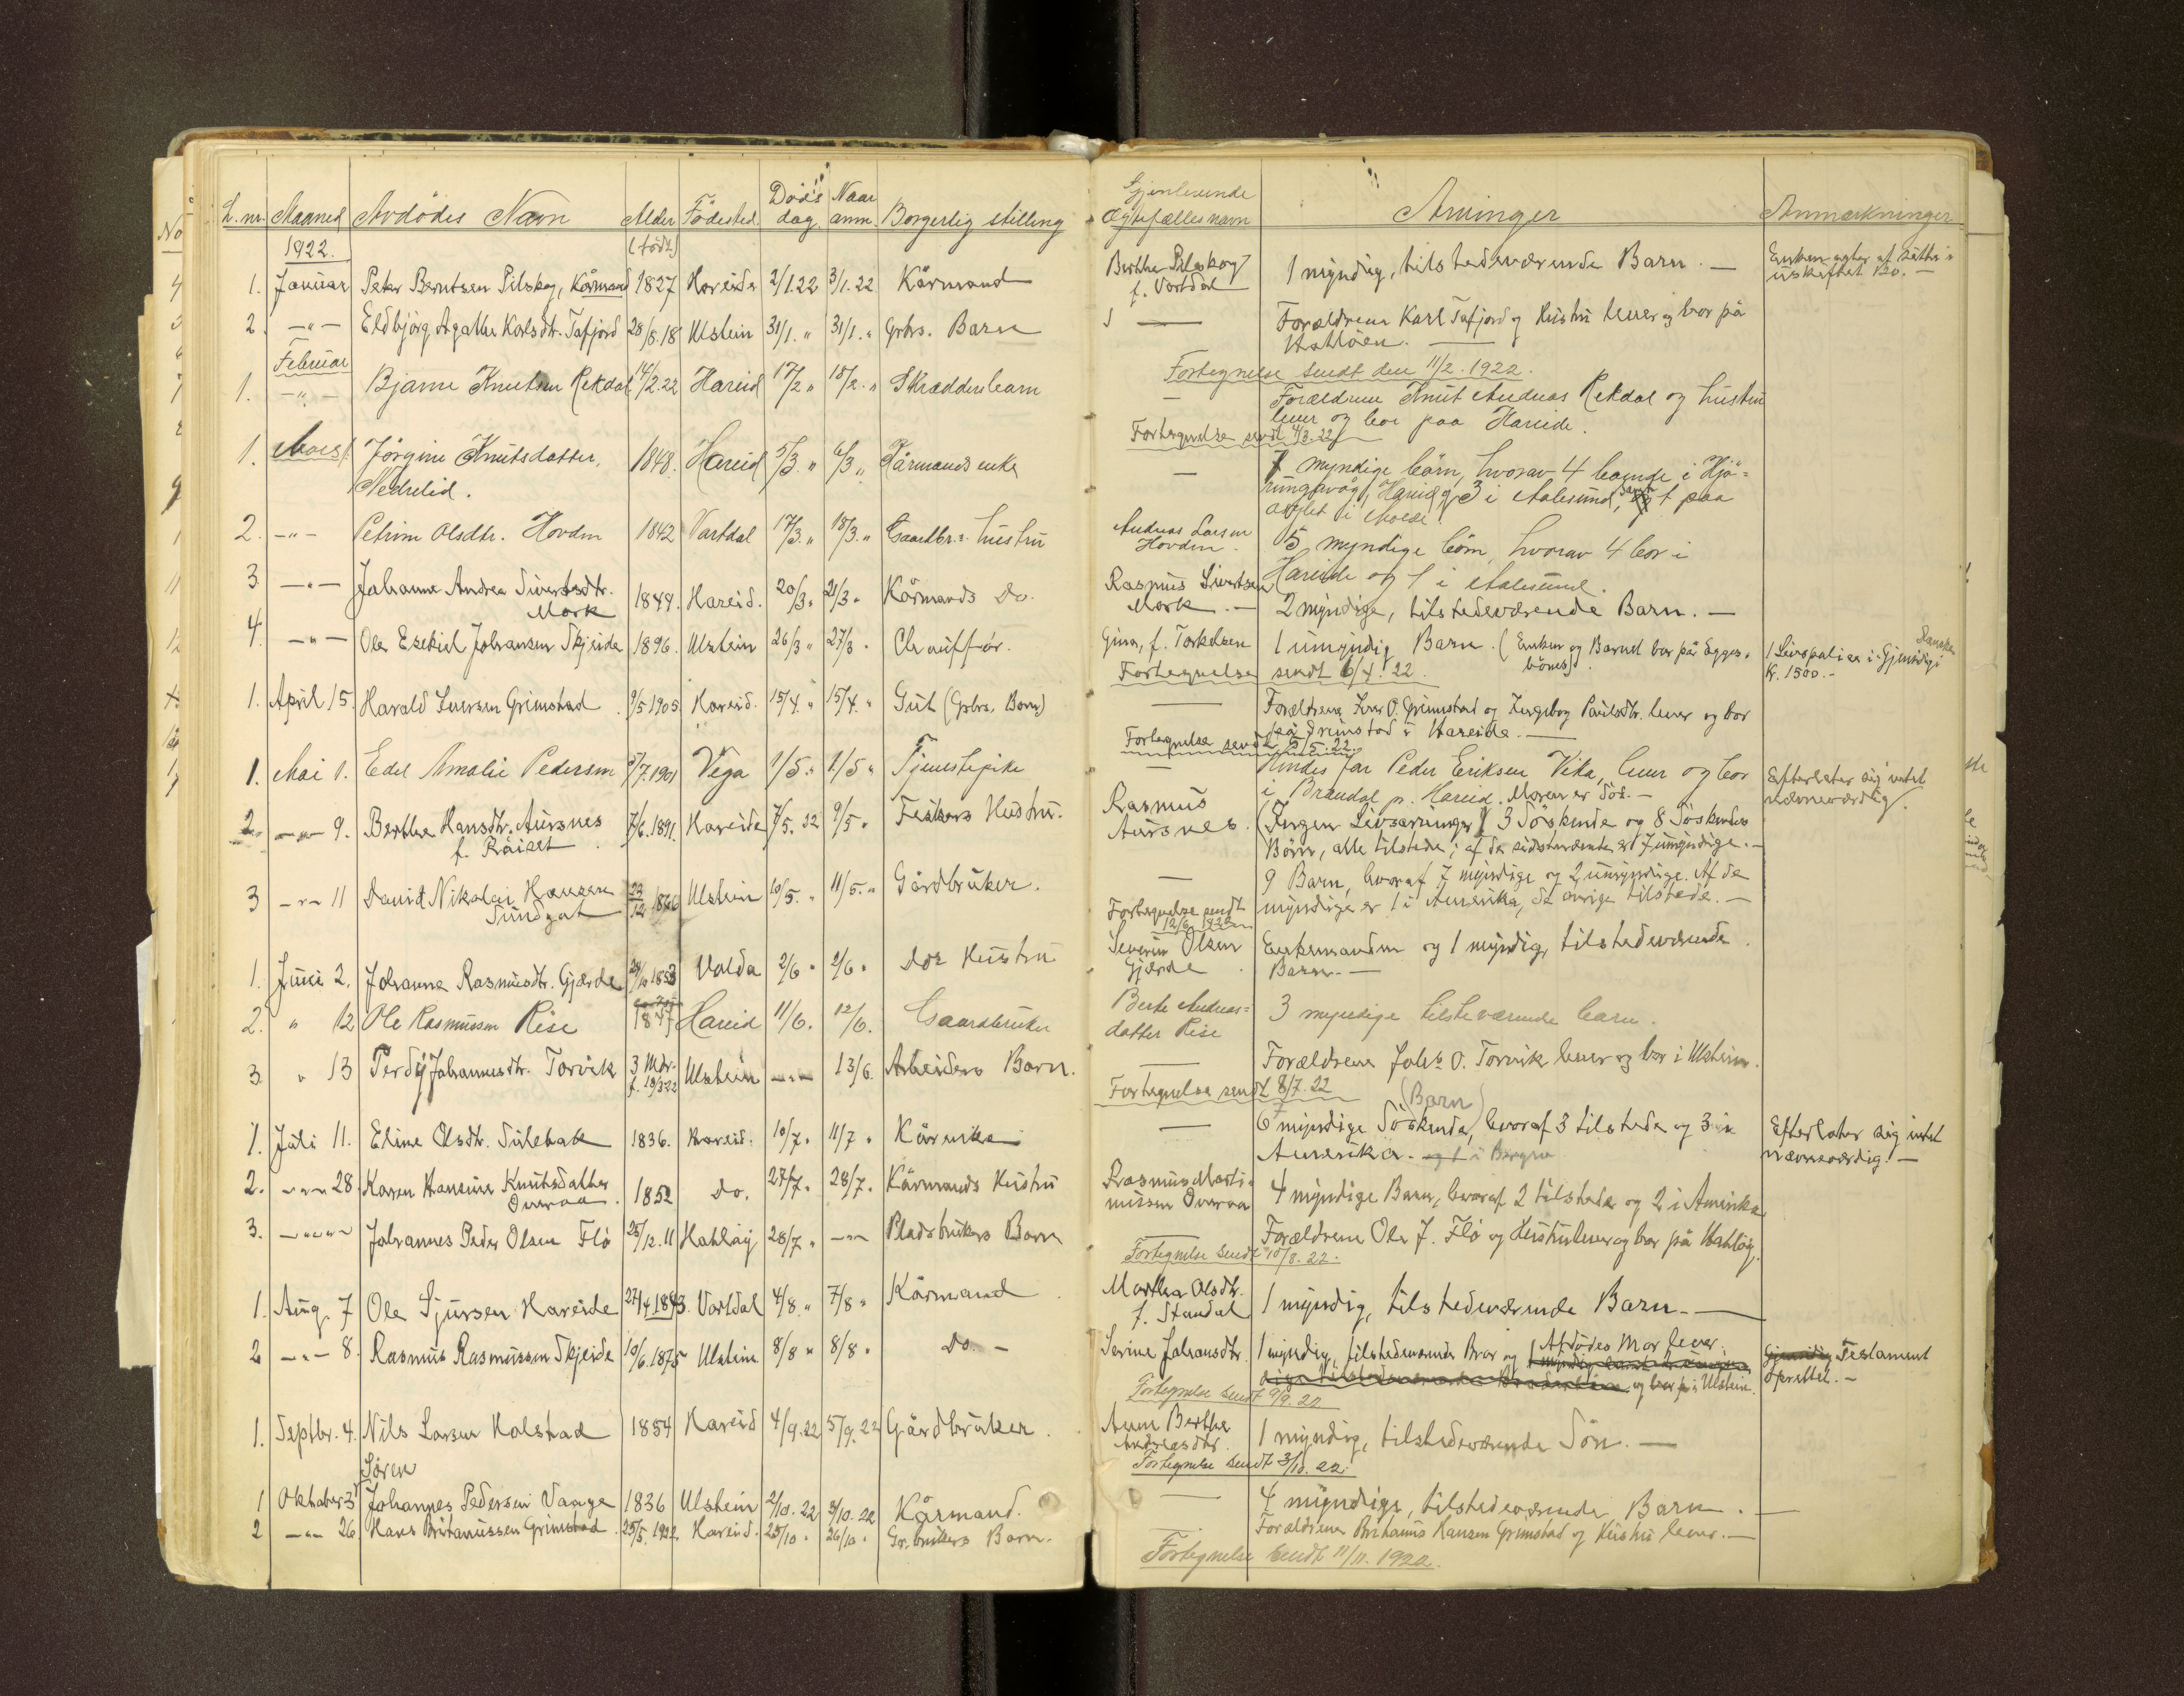 L. nr. Maaned Avdödes Navn Alder Födested. Døds dag. Naar anm. Borgerlig stilling Gjenlevende Ægtefælles navn Arvinger Anmærkninger
1922. (født)
1. Januar Peter Berntsen Pilskog, Kårmand 1827 Hareide 2/1.22 3/1.22 Kårmand Berthe Pilskog f. Vartdal 1 myndig, tilstedeværende Barn. — Enken agter at sitte i uskiftet Bo. —
2. —"— Eldbjörg Agathe Karlsdtr. Tafjord 28/8.18 Ulstein 31/1. " 31/1. " Grbrs. Barn — Forældrene Karl Tafjord og Hustru lever og bor på
Hatløen. —
Februar
Fortegnelse sendt den 11/2. 1922.
1. —"— Bjarne Knutsen Rekdal 14/2.22 Hareid 17/2 " 18/2. " Skrædderbarn — Forældrene Knut Andreas Rekdal og hustru
lever og bor paa Hareide.
Fortegnelse sendt 4/3. 22
1. Marts Jörgine Knutsdatter, 1848. Hareid 5/3. " 6/3 " Kårmands enke — 7 myndige börn, hvorav 4 boende i Hjö=
Nedrelid. rungavåg, Hareid og 3 i Aalesund, samt 1 paa
2. —"— Petrine Olsdtr. Hovden 1842 Vartdal 17/3. " 18/3. " Gaardbr.s hustru Andreas Larsen Hovden. 5 myndige börn, hvorav 4 bor i
Hareide og 1 i Aalesund.
3. —"— Johanne Andrea Sivertsdtr. Mork 1844. Hareid. 20/3. 21/3. Kårmands Do. Rasmus Sivertsen Mork. — 2 myndige, tilstedeværende Barn. —
4. —"— Ole Esekiel Johansen Skjeide 1896. Ulstein 26/3 " 27/3 " Chauffør. Gina, f. Torkelsen 1 umyndig Barn. (Enken og Barnet bor på Egges-
bönes). 1 Livspolise i Gjensidige Kr. 1500.-
Fortegnelse sendt 6/4. 22.
1. April 15. Harald Iversen Grimstad 9/5 1905 Hareid. 15/4. " 15/4. " Gut (Grbrs. Barn) — Forældrene Iver O. Grimstad og Ingebog Paulsdtr. lever og bor
på Grimstad i Hareide. —
Fortegnelse sendt 5/5. 22.
1. Mai 1. Edel Amalie Pedersen 5/7.1901 Vega 1/5. " 1/5 " Tjenestepike — Hindes far Peder Eriksen Vika, lever og bor
i Brandal pr. Hareid. Moren er död. — Efterlater sig intet nævneværdig.
2. —"— 9. Berthe Hansdtr. Aursnes f. Röiset 7/6. 1891. Hareide 7/5. 22 9/5 " Fiskers Hustru. Rasmus Aursnes. (Ingen Livsarvinger) 3 Söskende og 8 Söskendes
Börn, alle tilstede; af de sidstnævnte er 7 umyndige. —
3 —"— 11 David Nikolai Hansen Sundgat 23/12 1866 Ulstein 10/5. " 11/5. " Gårdbruker. — 9 Barn, hvoraf 7 myndige og 2 umyndige. Af de
myndige er 1 i Amerika, de øvrige tilstede. —
Fortegnelse sendt 12/6 1922
1. Juni 2. Johanna Rasmusdtr. Gjærde 24/10 1853 Volda 2/6 " 2/6 " Dos Hustru Severin Olsen Gjærde Enkemanden og 1 myndig, tilstedeværende
Barn. —
2. " 12 Ole Rasmussen Rise 1847 Hareid 11/6. 12/6. Gaardbruker Berte Andreas=datter Rise 3 myndige tilsteværende barn.
3. " 13 Perdy Johannesdtr. Torvik 3 Mdr. f. 10/3 22 Ulstein —"— 13/6. Arbeiders Barn. — Forældrene Johs. O. Torvik lever og bor i Ulstein.
Fortegnelse sendt 8/7. 22
1. Juli 11. Eline Olsdtr. Teigebak 1836. Hareid. 10/7. 11/7 " Kårenke — 6 myndige Söskende (Barn), hvoraf 3 tilstede og 3 i
Amerika. — og 1 i Bergen Efterlater sig intet nævneværdig. —
2. —"— 28. Karen Hansine Knutsdatter Overaa. 1852 Do. 27/7. 28/7. Kårmands Hustru Rasmus Martinussen Overaa 4 myndige Barn, hvoraf 2 tilstede og 2 i Amerika
3. —"— Johannes Peder Olsen Flø 25/12. 11 Hatløy 28/7 " —"— Pladsbrukers Barn Forældrene Ole J. Flø og Hustru lever og bor på Hatløy.
Fortegnelse sendt 10/8. 22.
1. Aug. 7 Ole Sjursen Hareide 27/4 1843. Vartdal 4/8. " 7/8 " Kårmand Martha Olsdtr. f. Standal 1 myndig, tilstedeværende Barn. —
2 —"— 8. Rasmus Rasmussen Skjeide 10/6. 1875 Ulstein 8/8 " 8/8 " Do. — Serine Johansdtr. 1 myndig, tilstedeværende Bror og Afdödes Mor lever,
og bor i Ulstein. Testament oprettet. —
Fortegnelse sendt 9/9. 22
1. Septbr. 4. Nils Larsen Kolstad 1854 Hareid 4/9. 22 5/9. 22 Gårdbruker. Anne Berthe Andreasdtr. 1 myndig, tilstedeværende Sön. —
Fortegnelse sendt 3/10. 22.
Sören
1 Oktober 3 Johannes Pedersen Vaage 1836 Ulstein 2/10. 22 3/10. 22 Kårmand. — 4 myndige, tilstedeværende Barn. —
2 —"— 26. Hans Britanussen Grimstad 25/5. 1922. Hareid. 25/10 " 26/10 " Gr. brukers Barn. Forældrene Britanus Hansen Grimstad og Hustru lever. —
Fortegnelse sendt 11/11. 1922.